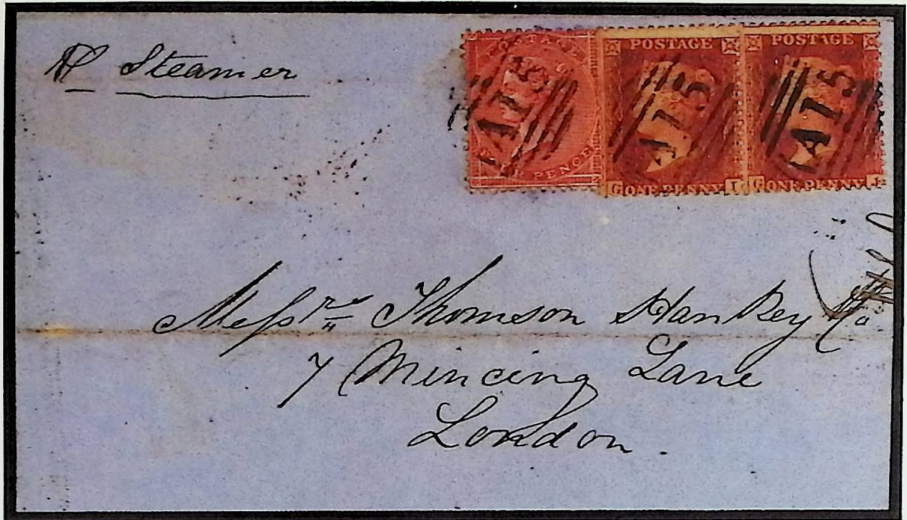 Pr Steamer
POSTAGE
A15
FOUR PENCE
POSTAGE
A15
G ONE PENNY I
POSTAGE
A15
G ONE PENNY J
Messrs Thomson Hankey & Co
7 Mincing Lane
London.